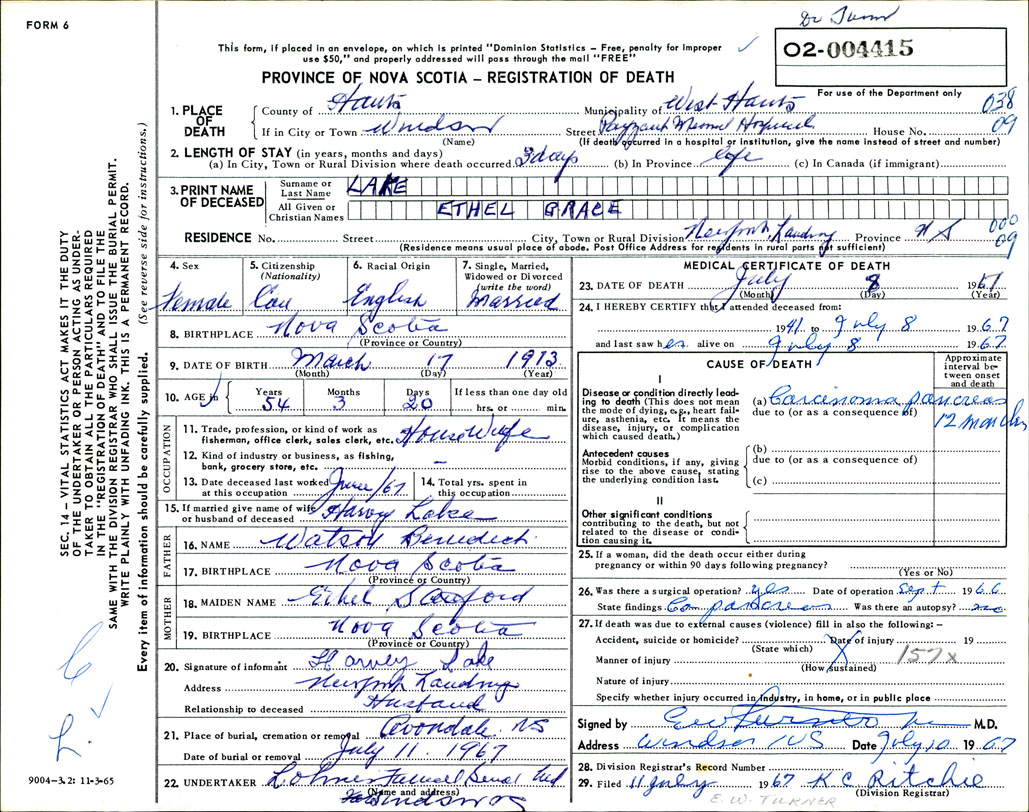 FORM 6
Dr Turner
This form, if placed in an envelope, on which is printed "Dominion Statistics – Free, penalty for improper
use $50," and properly addressed will pass through the mail "FREE"
O2-004415
PROVINCE OF NOVA SCOTIA – REGISTRATION OF DEATH
For use of the Department only
1. PLACE OF DEATH
County of Hants Municipality of West Hants 038
If in City or Town Windsor Street Payzant Memorial Hospital House No. 09
(Name) (If death occurred in a hospital or institution, give the name instead of street and number)
2. LENGTH OF STAY (in years, months and days)
(a) In City, Town or Rural Division where death occurred 3 days (b) In Province life (c) In Canada (if immigrant)
3. PRINT NAME OF DECEASED
Surname or Last Name LAKE
All Given or Christian Names ETHEL GRACE
000
RESIDENCE No. Street City, Town or Rural Division Newport Landing Province N S 09
(Residence means usual place of abode. Post Office Address for residents in rural parts not sufficient)
4. Sex Female
5. Citizenship (Nationality) Can
6. Racial Origin English
7. Single, Married, Widowed or Divorced (write the word) Married
8. BIRTHPLACE Nova Scotia
(Province or Country)
9. DATE OF BIRTH March 17 1913
(Month) (Day) (Year)
10. AGE in Years 54 Months 3 Days 20 If less than one day old
hrs. or min.
OCCUPATION
11. Trade, profession, or kind of work as
fisherman, office clerk, sales clerk, etc. House Wife
12. Kind of industry or business, as fishing,
bank, grocery store, etc. –
13. Date deceased last worked at this occupation June/67
14. Total yrs. spent in this occupation
15. If married give name of wife or husband of deceased Harvy Lake
FATHER
16. NAME Watson Benedict
17. BIRTHPLACE Nova Scotia
(Province or Country)
MOTHER
18. MAIDEN NAME Ethel Sanford
19. BIRTHPLACE Nova Scotia
(Province or Country)
20. Signature of informant Harvey Lake
Address Newport Landing
Relationship to deceased Husband
21. Place of burial, cremation or removal Avondale NS
Date of burial or removal July 11, 1967
22. UNDERTAKER Funeral Ltd
(Name and address)
Windsor NS
MEDICAL CERTIFICATE OF DEATH
23. DATE OF DEATH July 8 1967
(Month) (Day) (Year)
24. I HEREBY CERTIFY that I attended deceased from:
1941 to July 8 1967
and last saw her alive on July 8 1967
CAUSE OF DEATH
Approximate interval between onset and death
I
Disease or condition directly leading to death (This does not mean
the mode of dying, e.g., heart failure, asthenia, etc. It means the
disease, injury, or complication
which caused death.)
(a) Carcinoma pancreas
due to (or as a consequence of)
12 months
Antecedent causes
Morbid conditions, if any, giving
rise to the above cause, stating
the underlying condition last.
(b)
due to (or as a consequence of)
(c)
II
Other significant conditions
contributing to the death, but not
related to the disease or condition causing it.
25. If a woman, did the death occur either during
pregnancy or within 90 days following pregnancy?
(Yes or No)
26. Was there a surgical operation? yes Date of operation Sept 1966
State findings Ca pancreas Was there an autopsy? no
27. If death was due to external causes (violence) fill in also the following: –
Accident, suicide or homicide? Date of injury 19
(State which)
Manner of injury 157x
(How sustained)
Nature of injury
Specify whether injury occurred in industry, in home, or in public place
Signed by EW Turner M.D.
Address Windsor NS Date July 10 1967
28. Division Registrar's Record Number
29. Filed 11 July 1967 K C Ritchie
(Division Registrar)
E. W. TURNER
SEC. 14 – VITAL STATISTICS ACT MAKES IT THE DUTY
OF THE UNDERTAKER OR PERSON ACTING AS UNDER-
TAKER TO OBTAIN ALL THE PARTICULARS REQUIRED
IN THE "REGISTRATION OF DEATH" AND TO FILE THE
SAME WITH THE DIVISION REGISTRAR WHO SHALL ISSUE THE BURIAL PERMIT.
WRITE PLAINLY WITH UNFADING INK. THIS IS A PERMANENT RECORD.
Every item of information should be carefully supplied. (See reverse side for instructions.)
9004-3.2: 11-3-65